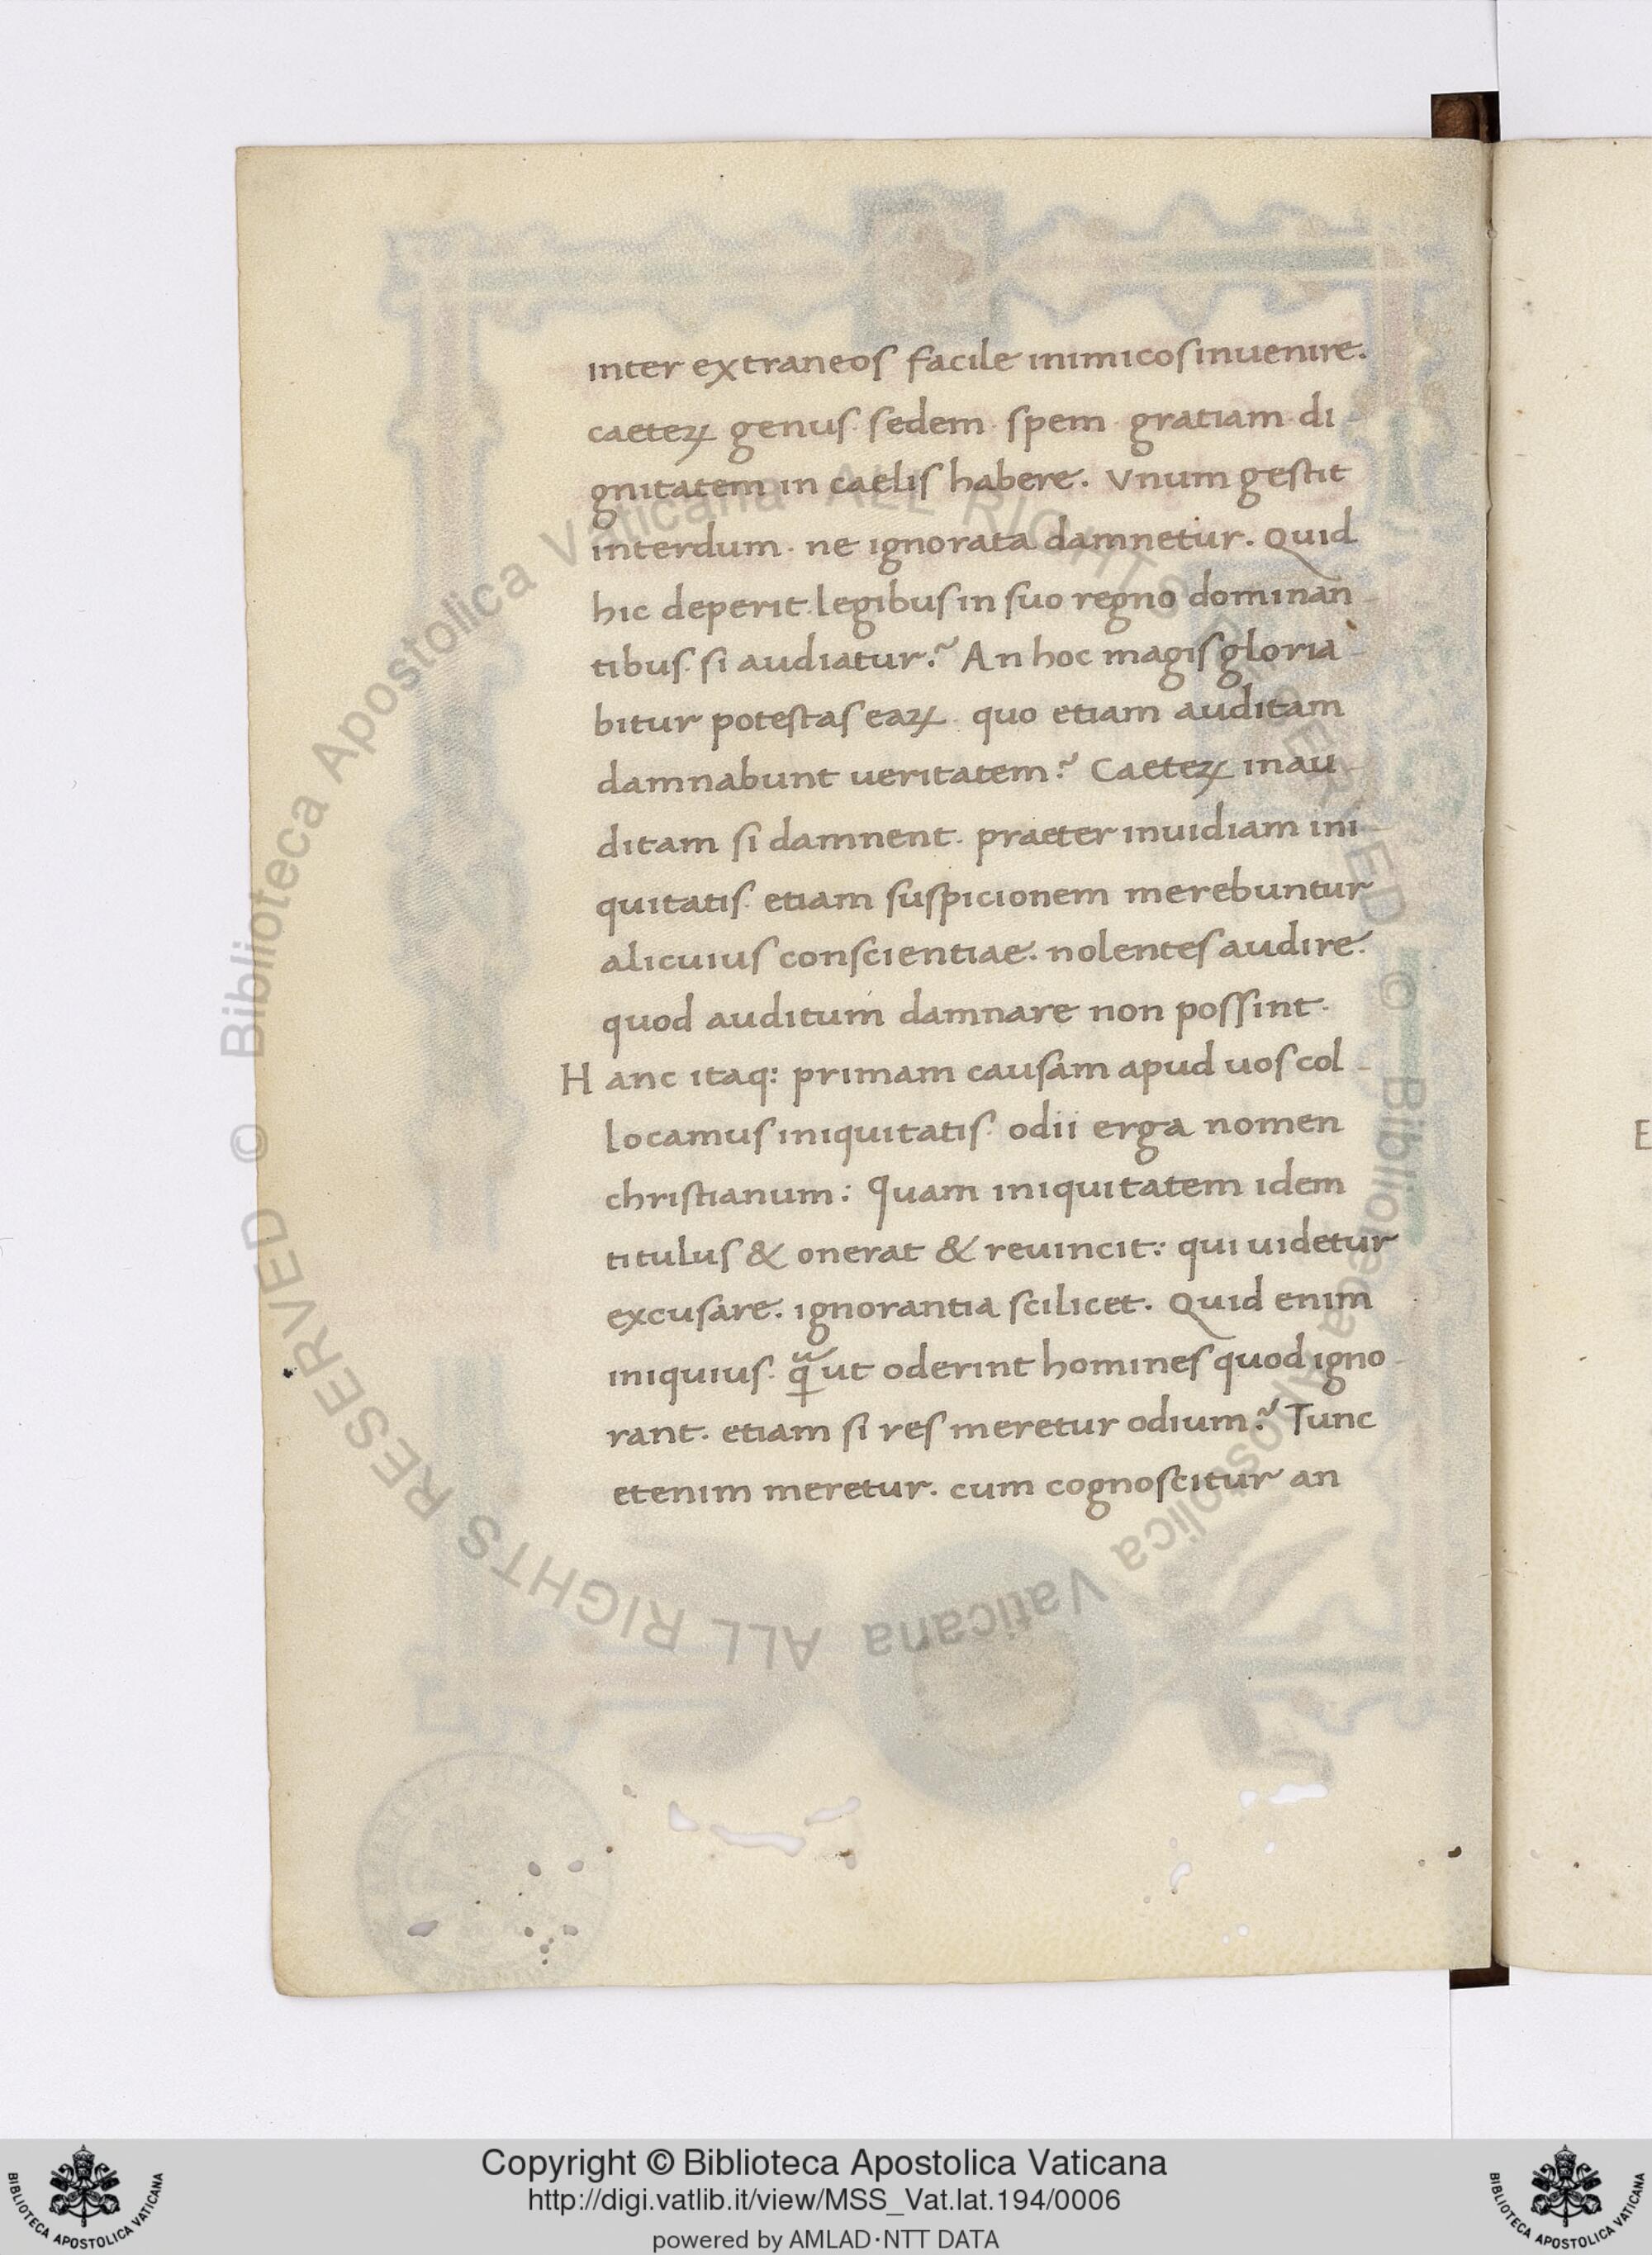 inter extraneos facile inimicos inuenire.
caeteꝝ genus. sedem. spem. gratiam. di-
gnitatem in caelis habere. Vnum gestit
interdum. ne ignorata damnetur. Quid
hic deperit legibus in suo regno dominan-
tibus. si audiatur? An hoc magis gloria-
bitur potestas eaꝝ. quo etiam auditam
damnabunt ueritatem? Caeteꝝ inau-
ditam si damnent. praeter inuidiam ini-
quitatis. etiam suspicionem merebuntur
alicuius conscientiae. nolentes audire.
quod auditum damnare non possint.
Hanc itaq: primam causam apud uos col-
locamus iniquitatis. odii erga nomen
christianum: Quam iniquitatem idem
titulus & onerat & reuincit: qui uidetur
excusare. ignorantia scilicet. Quid enim
iniquius. q̃ ut oderint homines quod igno-
rant. etiam si res meretur odium? Tunc
etenim meretur. cum cognoscitur an
E
© Biblioteca Apostolica Vaticana ALL RIGHTS RESERVED © Biblioteca Apostolica Vaticana ALL RIGHTS RESERVED
Copyright © Biblioteca Apostolica Vaticana
http://digi.vatlib.it/view/MSS_Vat.lat.194/0006
powered by AMLAD·NTT DATA
BIBLIOTECA APOSTOLICA VATICANA
BIBLIOTECA APOSTOLICA VATICANA